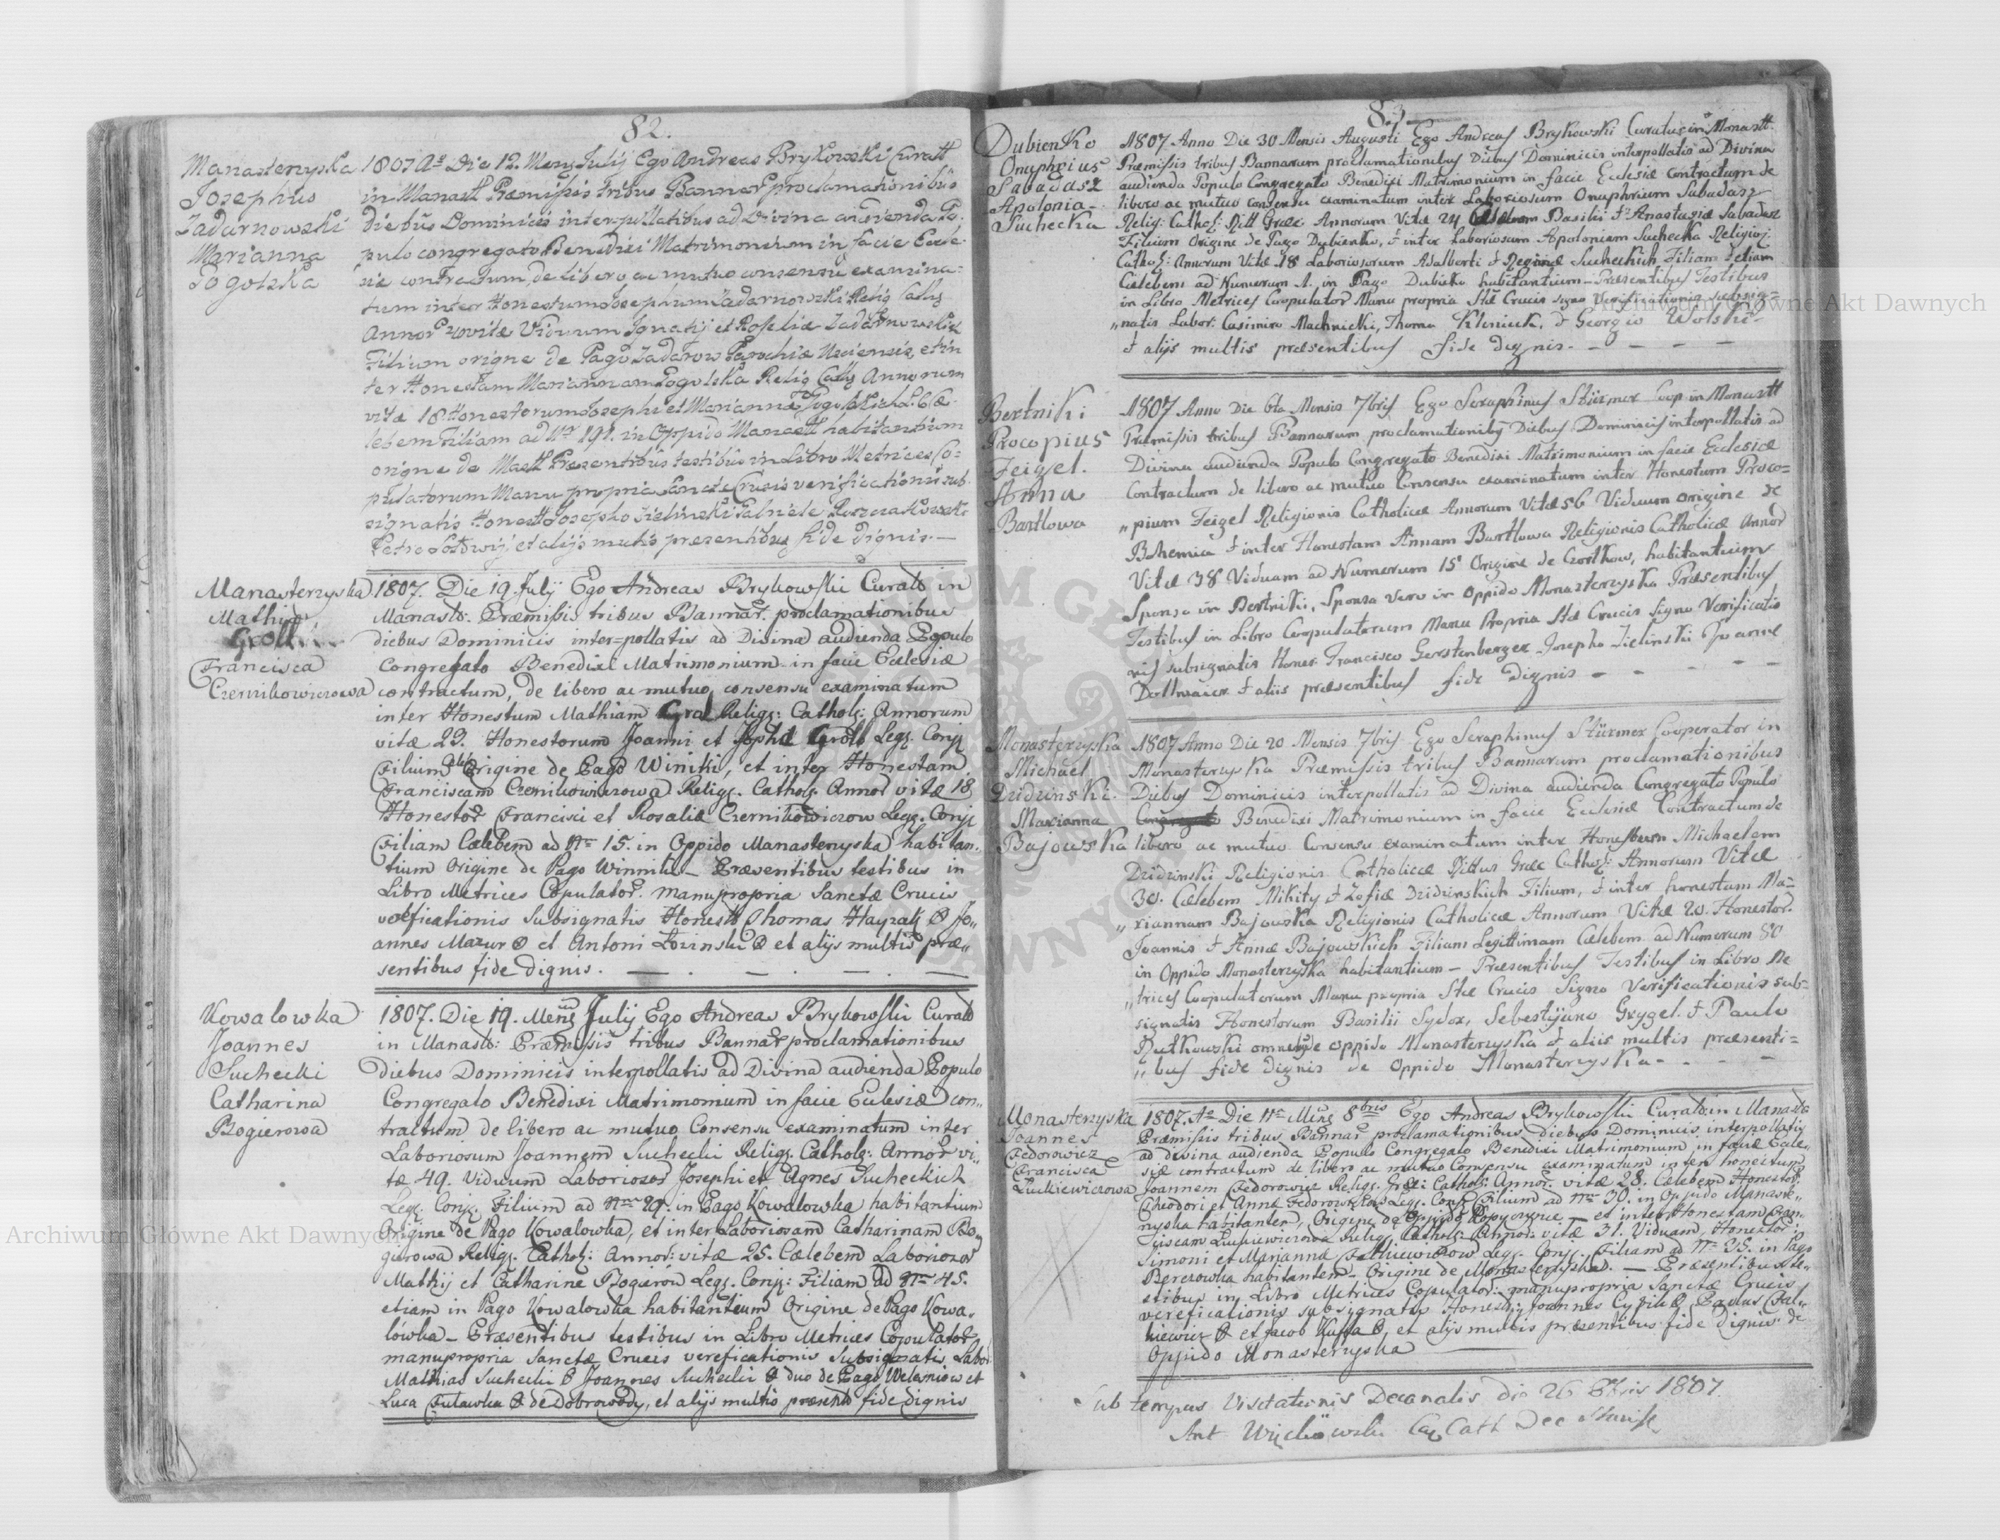 82.
Manasterzyska
Josephus
Zadarnowski
Marianna
Pogolska
1807 Ao Die 12. Mens Julij Ego Andreas Brykowski Curatt
in Manast Præmissis tribus Bannar proclamationibus
Diebus Dominicis interpollatibus ad Divina audienda Po-
pulo congregato Benedixi Matrimonium in facie Eccle-
siæ contractum, de libero ac mutuo consensu examina-
tum inter Honestum Josephum Zadarnowski Relig Cath
Annor vitæ Viduum Ignatij et Rosaliæ Zadarnowskich
Filium origine de Pago Zadarow Parochiæ Usciensis, et in
ter Honestam Mariannam Pogolska Relig Cath Annorum
vitæ 18 Honestorum Josephi et Marianna Pogolskich L. C. Cæ-
lebem Filiam ad Nr 191. in Oppido Manast habitantium
origne de Mastt Præsentibus testibus in Libro Metrices Co-
pulatorum Manu propria Sanctæ Crucis verificationis sub-
signatis Honest Josepho Zielinski Gabriele Roszczakowski
Petro et alijs multis præsentibus fide dignis.—
Manasterzyska
Mathias
Groll
Francisca
Czernikowiczowa
1807. Die 19. July Ego Andreas Brykowski Curatt in
Manastt: Præmissis tribus Bannar. proclamationibus
diebus Dominicis inter=pollatis ad Divina audienda Populo
Congregato Benedixi Matrimonium in facie Eclesiæ
contractum, de libero ac mutuo consensu examinatum
inter Honestum Mathiam Grol Religs: Catholg: Annorum
vitæ 23. Honestorum Joanni et Sophiæ Groll Legg. Conjg
Filium Origine de Pago Winiki, et inter Honestam
Franciscam Czernikowiczowa Religs. Catholg Annor vitæ 18
Honestor Francisci et Rosaliæ Czernikowiczow Legg. Conjg
Filiam Cælebem ad Nro 15. in Oppido Manasterzyska habitan-
tium Origine de Pago Winniki — Præsentibus testibus in
Libro Metrices Copulator. manupropria Sanctæ Crucis
vereficationis Subsignatis Honestt Thomas Hayzak & Jo-
annes Mazur & et Antoni Lozinski & et alijs multis præ-
sentibus fide dignis. — . — . — . —
Kowalowka
Joannes
Suchecki
Catharina
Bogurowa
1807. Die 19. Mens Julij Ego Andreas Brykowski Curatt
in Manastt: Præmissis tribus Bannar proclamationibus
diebus Dominicis interpollatis ad Divina audienda Populo
Congregato Benedixi Matrimonium in facie Eclesiæ con-
tractum de libero ac mutuo Consensu examinatum inter
Laboriosum Joannem Suchecki Religs. Catholg: Annor vi-
tæ 49. Viduum Laboriosor Josephi et Agnes Sucheckich
Legg. Conjg. Filium ad Nro 29. in Pago Kowalowka habitantium
Origine de Pago Kowalowka, et inter Laboriosam Catharinam Bo-
gurowa Religs. Catholg: Annor: vitæ 25. Cælebem Laboriosor
Mathij et Catharine Bogurow Legg. Conjg: Filiam ad Nro 45.
etiam in Pago Kowalowka habitantium Origine de Pago Kowa-
lówka — Præsentibus testibus in Libro Metrices Copulator
manupropria Sanctæ Crucis vereficationis Subsignatis Labor
Mathias Suchecki & Joannes Suchecki & duo de Pago Welesniow et
Luca Cutawka & de Dobrowody, et alijs multis præsentib fide dignis
83
Dubienko
Onuphrius
Sabadasz
Apolonia
Suchecka
1807 Anno Die 30 Mensis Augusti Ego Andreas Brykowski Curatus in Monastt.
Præmissis tribus Bannarum proclamationibus Diebus Dominicis interpollatis ad Divina
audienda Populo Congregato Benedixi Matrimonium in facie Eclesiæ Contractum de
libero ac mutuo Consensu examinatum inter Laboriosum Onuphrium Sabadasz
Relig: Cathol: Ritt Græc Annorum Vitæ 24 Basilii et Anastasiæ Sabadasz
Filium Origine de Pago Dubienko, et inter Laboriosam Apoloniam Suchecka Religio:
Cathol: Annorum Vitæ 18 Laboriosorum Adalberti et Reginæ Sucheckich Filiam etiam
Cælebem ad Numerum 1. in Pago Dubienko habitantium — Præsentibus Testibus
in Libro Metrices Coopulator Manu propria Stæ Crucis signo Verificationis subsig-
"natis Labor. Casimiro Machnicki, Thoma Kleniuk, et Georgio Wolski
et alijs multis præsentibus fide dignis. — — — —
Bertniki
Procopius
Feigel.
Anna
Bartlowa
1807 Anno Die 6ta Mensis 7bris Ego Seraphinus Stürmer Coop in Monastt
Præmissis tribus Bannarum proclamationibg Diebus Dominicis interpollatis ad
Divina audienda Populo Congregato Benedixi Matrimonium in facie Ecclesiæ
Contractum de libero ac mutuo Consensu examinatum inter Honestum Proco-
"pium Feigel Religionis Catholicæ Annorum Vitæ 56 Viduum Origine de
Bohemica et inter Honestam Annam Bartlowa Religionis Catholicæ Annor
Vitæ 38 Viduam ad Numerum 15. Origine de Czortkow, habitantium
Sponso in Bertniki, Sponsa vero in Oppido Monasterzyska Præsentibus
Testibus in Libro Coopulatorum Manu Propria Stæ Crucis Signo Verificatio
nis subsignatis Honor Francisco Gerstenberger Josepho Zielinski Joanne
Dollmaier et aliis præsentibus fide dignis — — — —
Monasterzyska
Michael
Dzidzinski.
Marianna
Bajowska
1807 Anno Die 20 Mensis 7bris Ego Seraphinus Stürmer Cooperator in
Monasterzyska Præmissis tribus Bannarum proclamationibus
Diebus Dominicis interpollatis ad Divina audienda Congregato Populo
Congregato Benedixi Matrimonium in facie Ecclesiæ Contractum de
libero ac mutuo Consensu examinatum inter Honestum Michaelem
Dzidzinski Religionis Catholicæ Rittus Græc Cathol: Annorum Vitæ
30. Cælebem Mikity et Zofiæ Dzidzinskich Filium, et inter honestam Ma-
"riannam Bajowska Religionis Catholicæ Annorum Vitæ 20. Honestor.
Joannis et Annæ Bajowskich Filiam Legittimam Cælebem ad Numerum 80
in Oppido Monasterzyska habitantium — Præsentibus Testibus in Libro Me
"trices Coopulatorum Manu propria Stæ Crucis Signo Verificationis sub-
signatis Honestorum Basilii Sydor, Sebestijano Grygel et Paulo
Rutkowski omnibus de oppido Monasterzyska et aliis multis præsenti-
"bus fide Dignis de Oppido Monasterzyska — — — —
Monasterzyska
Joannes
Fedorowicz
Francisca
Luckiewiczowa
1807. Ao Die 11. Mens 8bris Ego Andreas Brykowski Curatt in Manastt
Præmissis tribus Bannar proclamationibus diebus Dominicis interpollatis
ad divina audienda Populo Congregato Benedixi Matrimonium in facie Ecle-
siæ contractum de libero ac mutuo Consensu examinatum inter honestum
Joannem Fedorowicz Religs. Græc: Catholg: Annor. vitæ 28. Cælebem Honestor:
Theodori et Annæ Fedorowiczow Legg. Conjg Filium ad Nro 30. in Oppido Manaste-
rzyska habitantem, Origine de Oppido Kopyczynce — et inter Honestam Fran-
ciscam Luckiewiczowa Religs. Catholg: Annor: vitæ 31. Viduam, Honestor:
Simoni et Marianna Fatkiewiczow Legg. Conjg. Filiam ad Nro 35. in Pago
Berezowka habitantem — Origine de Monasterzyska. — Præsentibus te-
stibus in Libro Metrices Copulator: manupropria Sanctæ Crucis
vereficationis subsignatis Honestg Joannes Cyfik & Paulus Fal-
kiewicz & et Jacob Kuffa &, et alijs multis præsentibus fide dignis de
Oppido Monasterzyska
Sub tempus Visitationis Decanalis die 26 8bris 1807.
Ant Cath Dec
Archiwum Główne Akt Dawnych
Archiwum Główne Akt Dawnych
ARCHIWUM GŁÓWNE AKT DAWNYCH